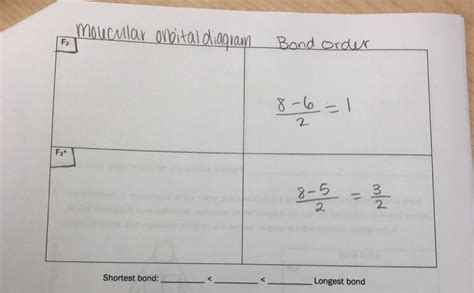 moucular orbital diagram Bond order
F₂
8-6/2 = 1
F₂⁺
8-5/2 = 3/2
Shortest bond: ______ < ______ < ______ Longest bond